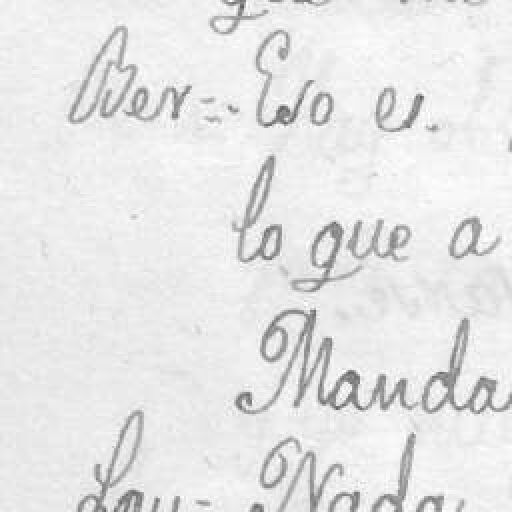 Ber=. Eso es.
lo que a
Manda
Lou- Nada